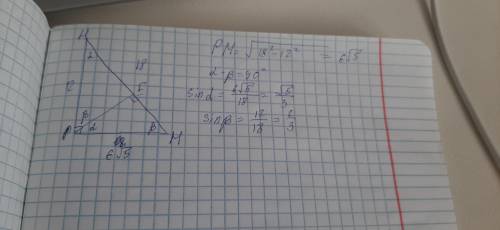 H
α
18
12
E
β
P
α
β
M
6√5
PM = √18²-12² = 6√5
α-β=90°
sinα = 6√5/18 = √5/3
sinβ = 12/18 = 2/3